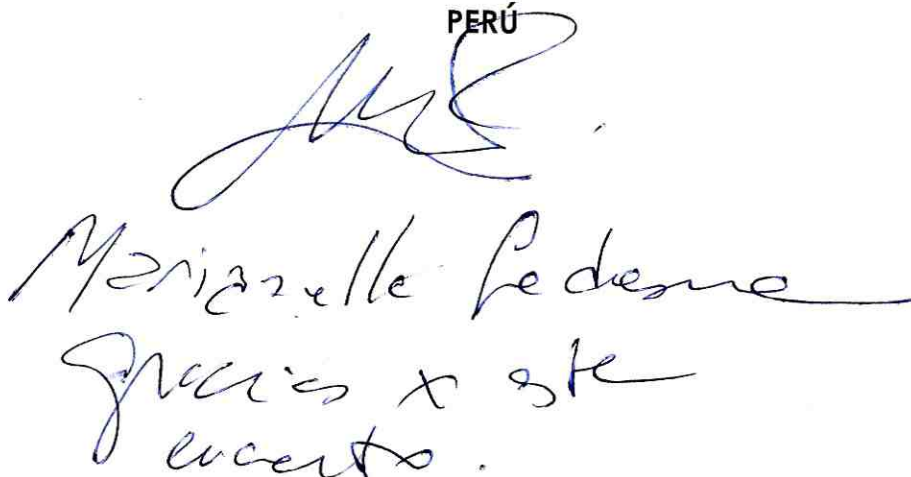 PERÚ
Marianella Ledesma
Gracias x este
encuentro.